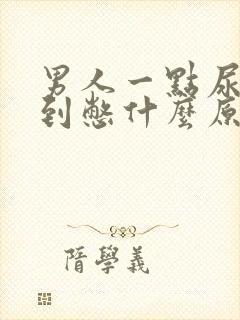 男人一點尿
到憋什麼原
隋學義